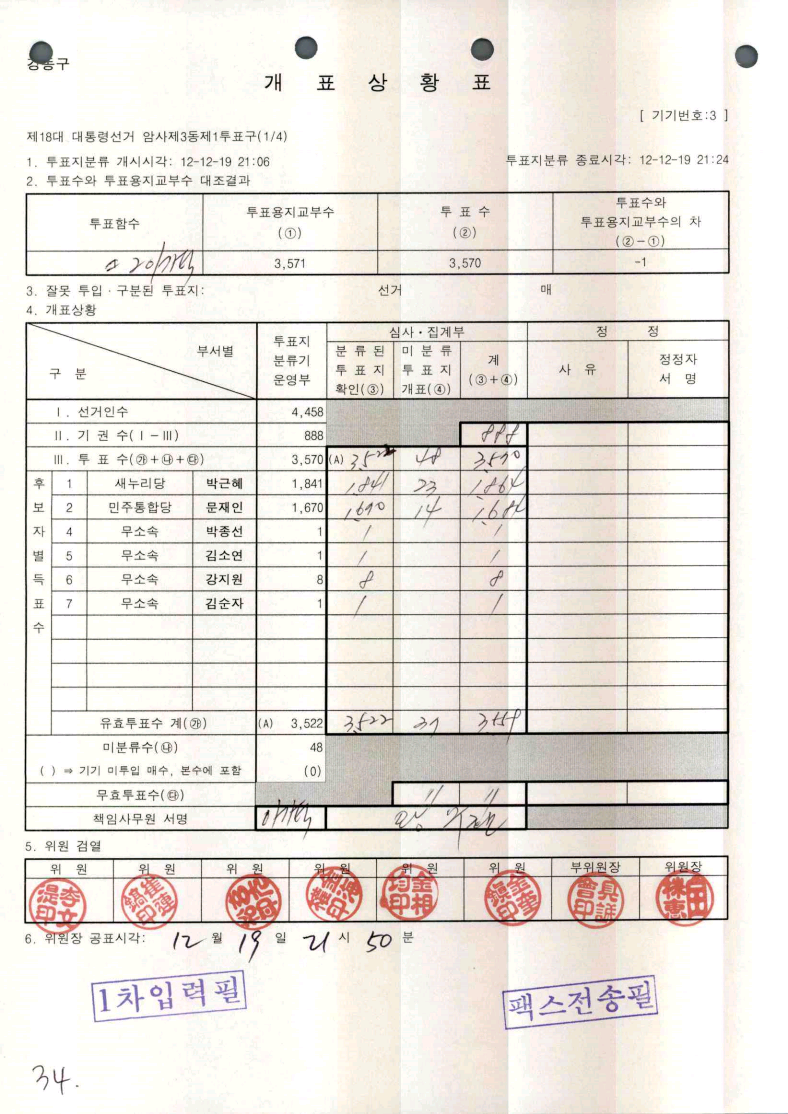 강동구
개 표 상 황 표
[ 기기번호:3 ]
제18대 대통령선거 암사제3동제1투표구(1/4)
1. 투표지분류 개시시각: 12-12-19 21:06 투표지분류 종료시각: 12-12-19 21:24
2. 투표수와 투표용지교부수 대조결과
투표함수 투표용지교부수 (①) 투 표 수 (②) 투표수와 투표용지교부수의 차 (②-①)
3,571 3,570 -1
3. 잘못 투입·구분된 투표지: 선거 매
4. 개표상황
구 분 부서별 투표지 분류기 운영부 심사·집계부 정 정
분 류 된 투 표 지 확인(③) 미 분 류 투 표 지 개표(④) 계 (③+④) 사 유 정정자 서 명
Ⅰ. 선거인수 4,458
Ⅱ. 기 권 수(Ⅰ-Ⅲ) 888 888
Ⅲ. 투 표 수(㉮+㉯+㉰) 3,570 (A) 3,522 48 3,570
후보자별득표수
1 새누리당 박근혜 1,841 1,841 23 1,864
2 민주통합당 문재인 1,670 1,670 14 1,684
4 무소속 박종선 1 1 1
5 무소속 김소연 1 1 1
6 무소속 강지원 8 8 8
7 무소속 김순자 1 1 1
유효투표수 계(㉮) (A) 3,522 3,522 37 3,559
미분류수(㉯) 48
( ) ⇒ 기기 미투입 매수, 본수에 포함 (0)
무효투표수(㉰) 11 11
책임사무원 서명
5. 위원 검열
위 원 위 원 위 원 위 원 위 원 위 원 부위원장 위원장
6. 위원장 공표시각: 12 월 19 일 21 시 50 분
1차입력필
팩스전송필
34.